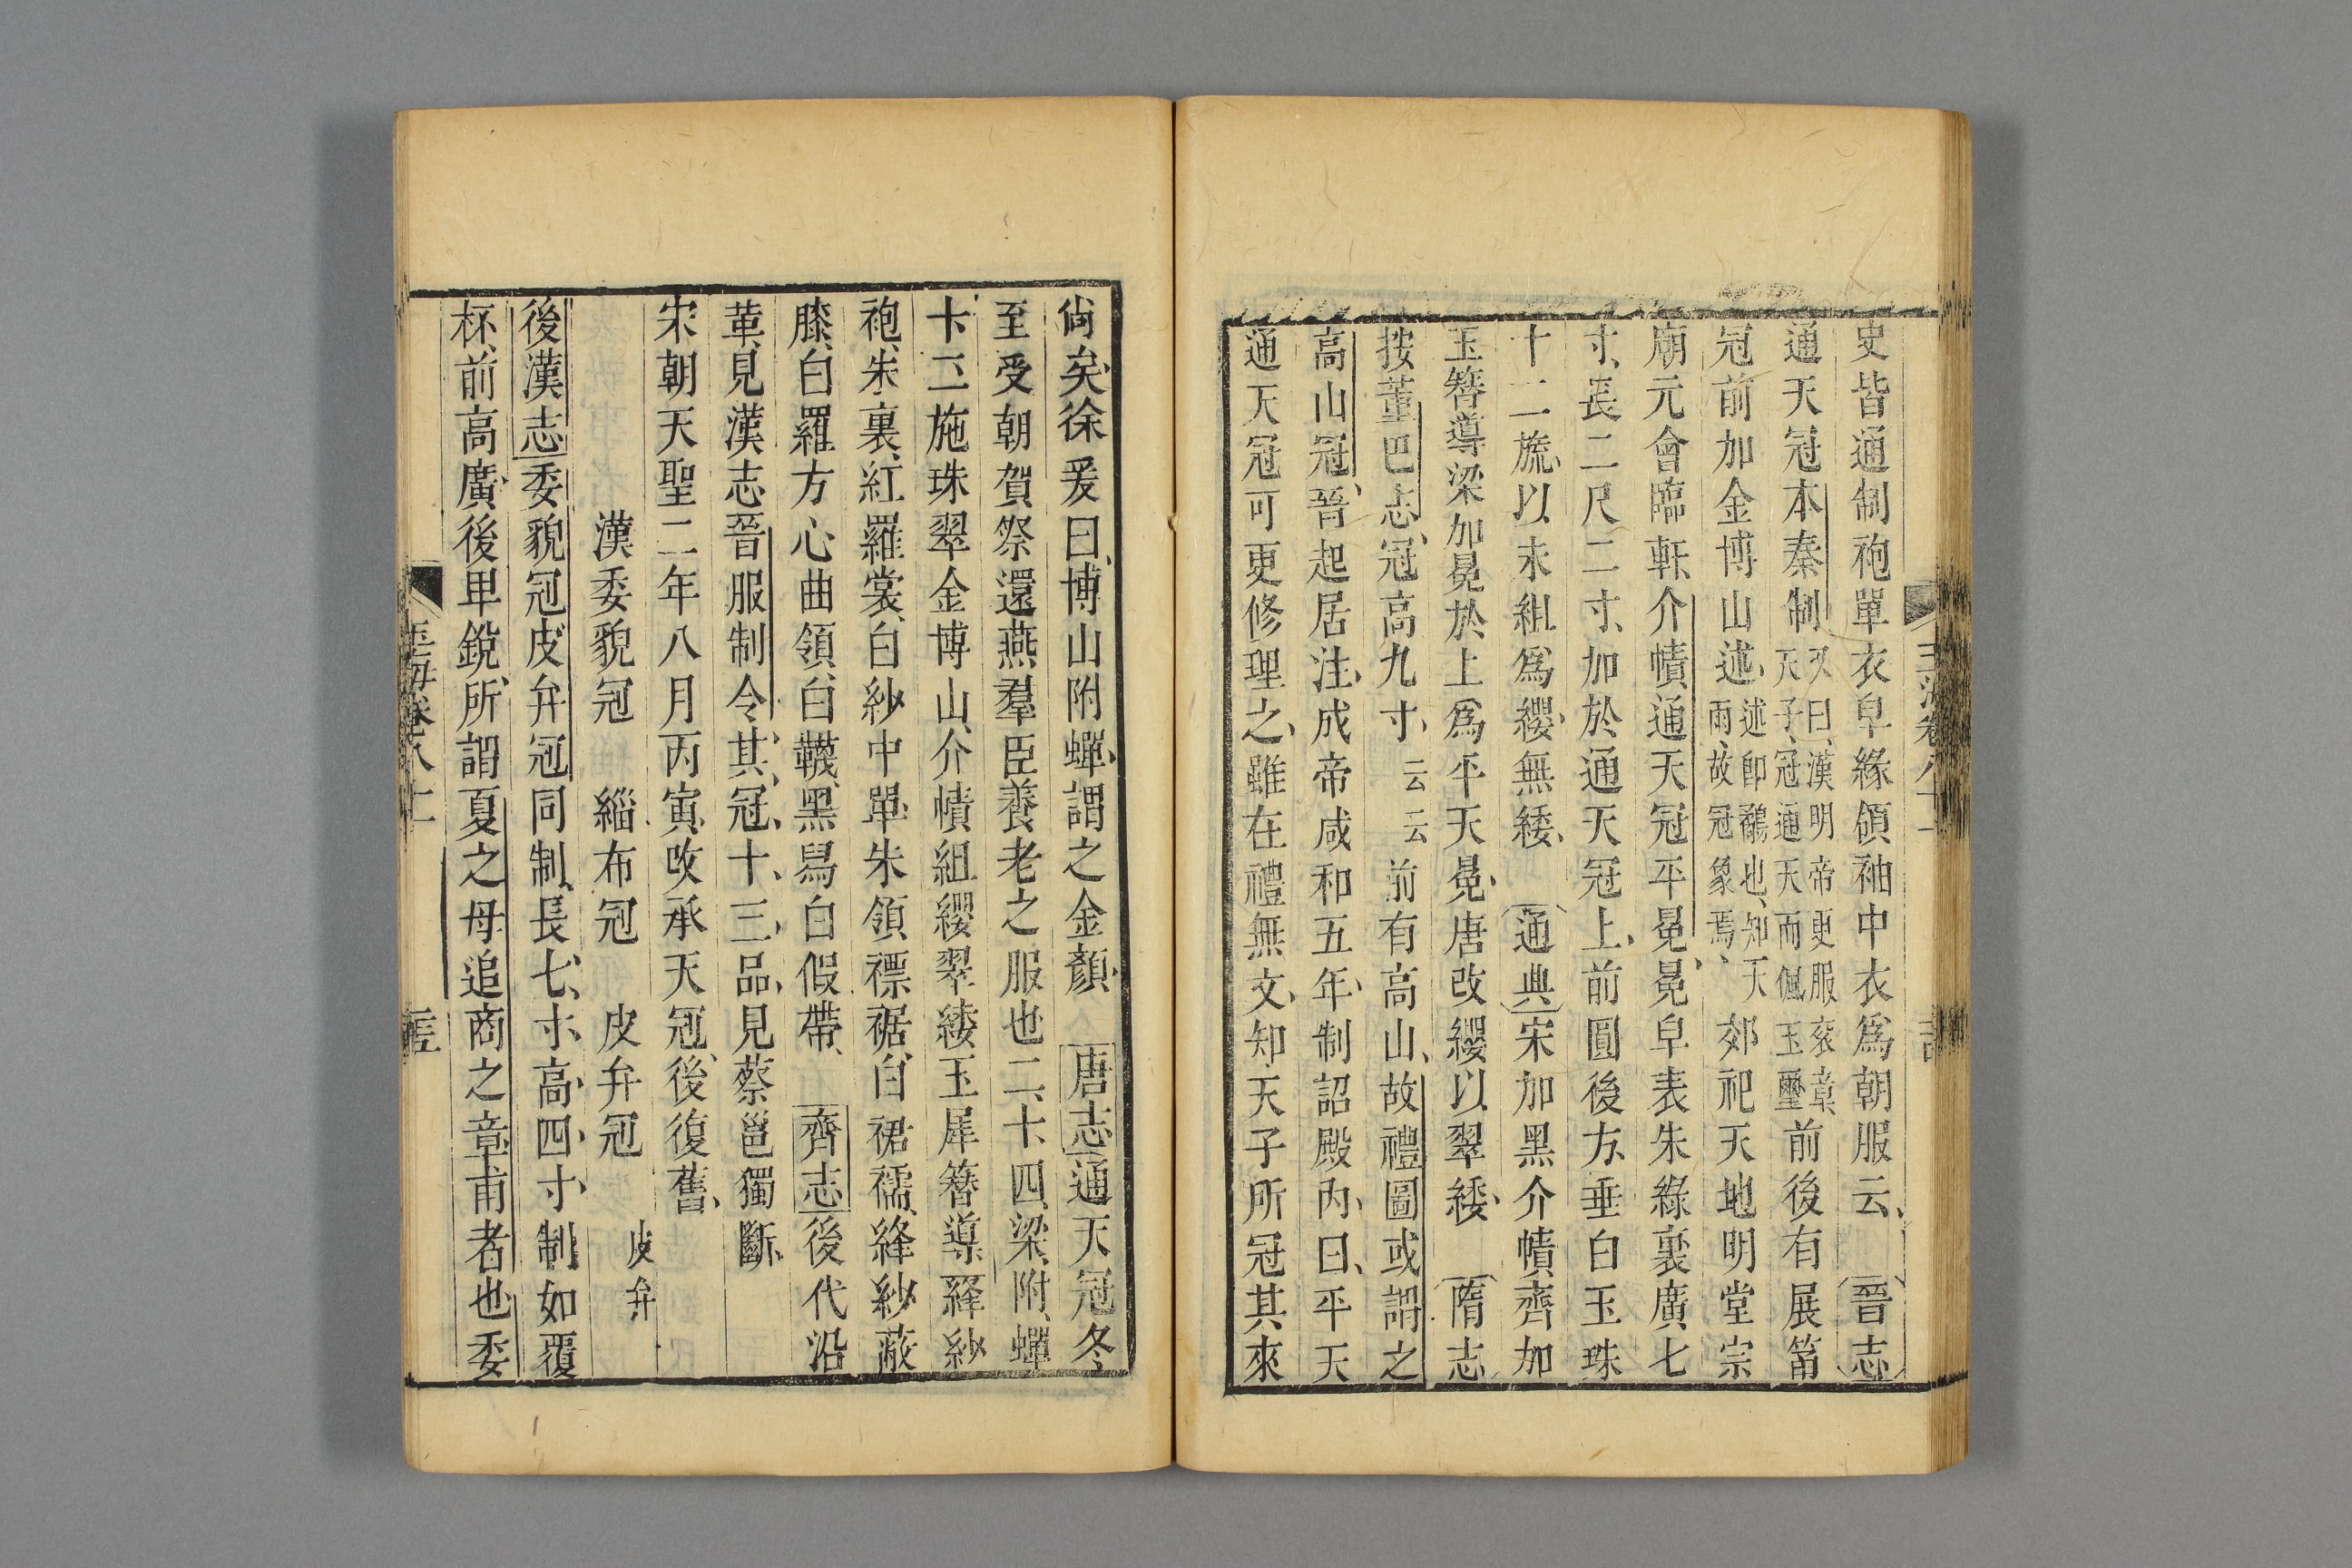 史皆通制袍單衣皁緣領袖中衣爲朝服云晉志
通天冠本秦制又曰漢明帝更服衮章天子冠通天而佩玉璽前後有展筩
冠前加金博山述述卽鷸也知天雨故冠象焉郊祀天地明堂宗
廟元會臨軒介幘通天冠平冕冕皁表朱綠裏廣七
寸長二尺二寸加於通天冠上前圓後方垂白玉珠
十二旒以朱組爲纓無緌通典宋加黑介幘齊加
玉簪導梁加冕於上爲平天冕唐改纓以翠緌隋志
按董巴志冠高九寸云云前有高山故禮圖或謂之
高山冠晉起居注成帝咸和五年制詔殿內曰平天
通天冠可更修理之雖在禮無文知天子所冠其來
尙矣徐爰曰博山附蟬謂之金顏唐志通天冠冬
至受朝賀祭還燕羣臣養老之服也二十四梁附蟬
十二施珠翠金博山介幘組纓翠緌玉犀簪導絳紗
袍朱裏紅羅裳白紗中單朱領褾裾白裙襦絳紗蔽
膝白羅方心曲領白韈黑舄白假帶齊志後代沿
革見漢志晉服制令其冠十三品見蔡邕獨斷
宋朝天聖二年八月丙寅改承天冠後復舊
漢委貌冠 緇布冠 皮弁冠 皮弁
後漢志委貌冠皮弁冠同制長七寸高四寸制如覆
杯前高廣後卑銳所謂夏之毋追商之章甫者也委
玉海卷八十二